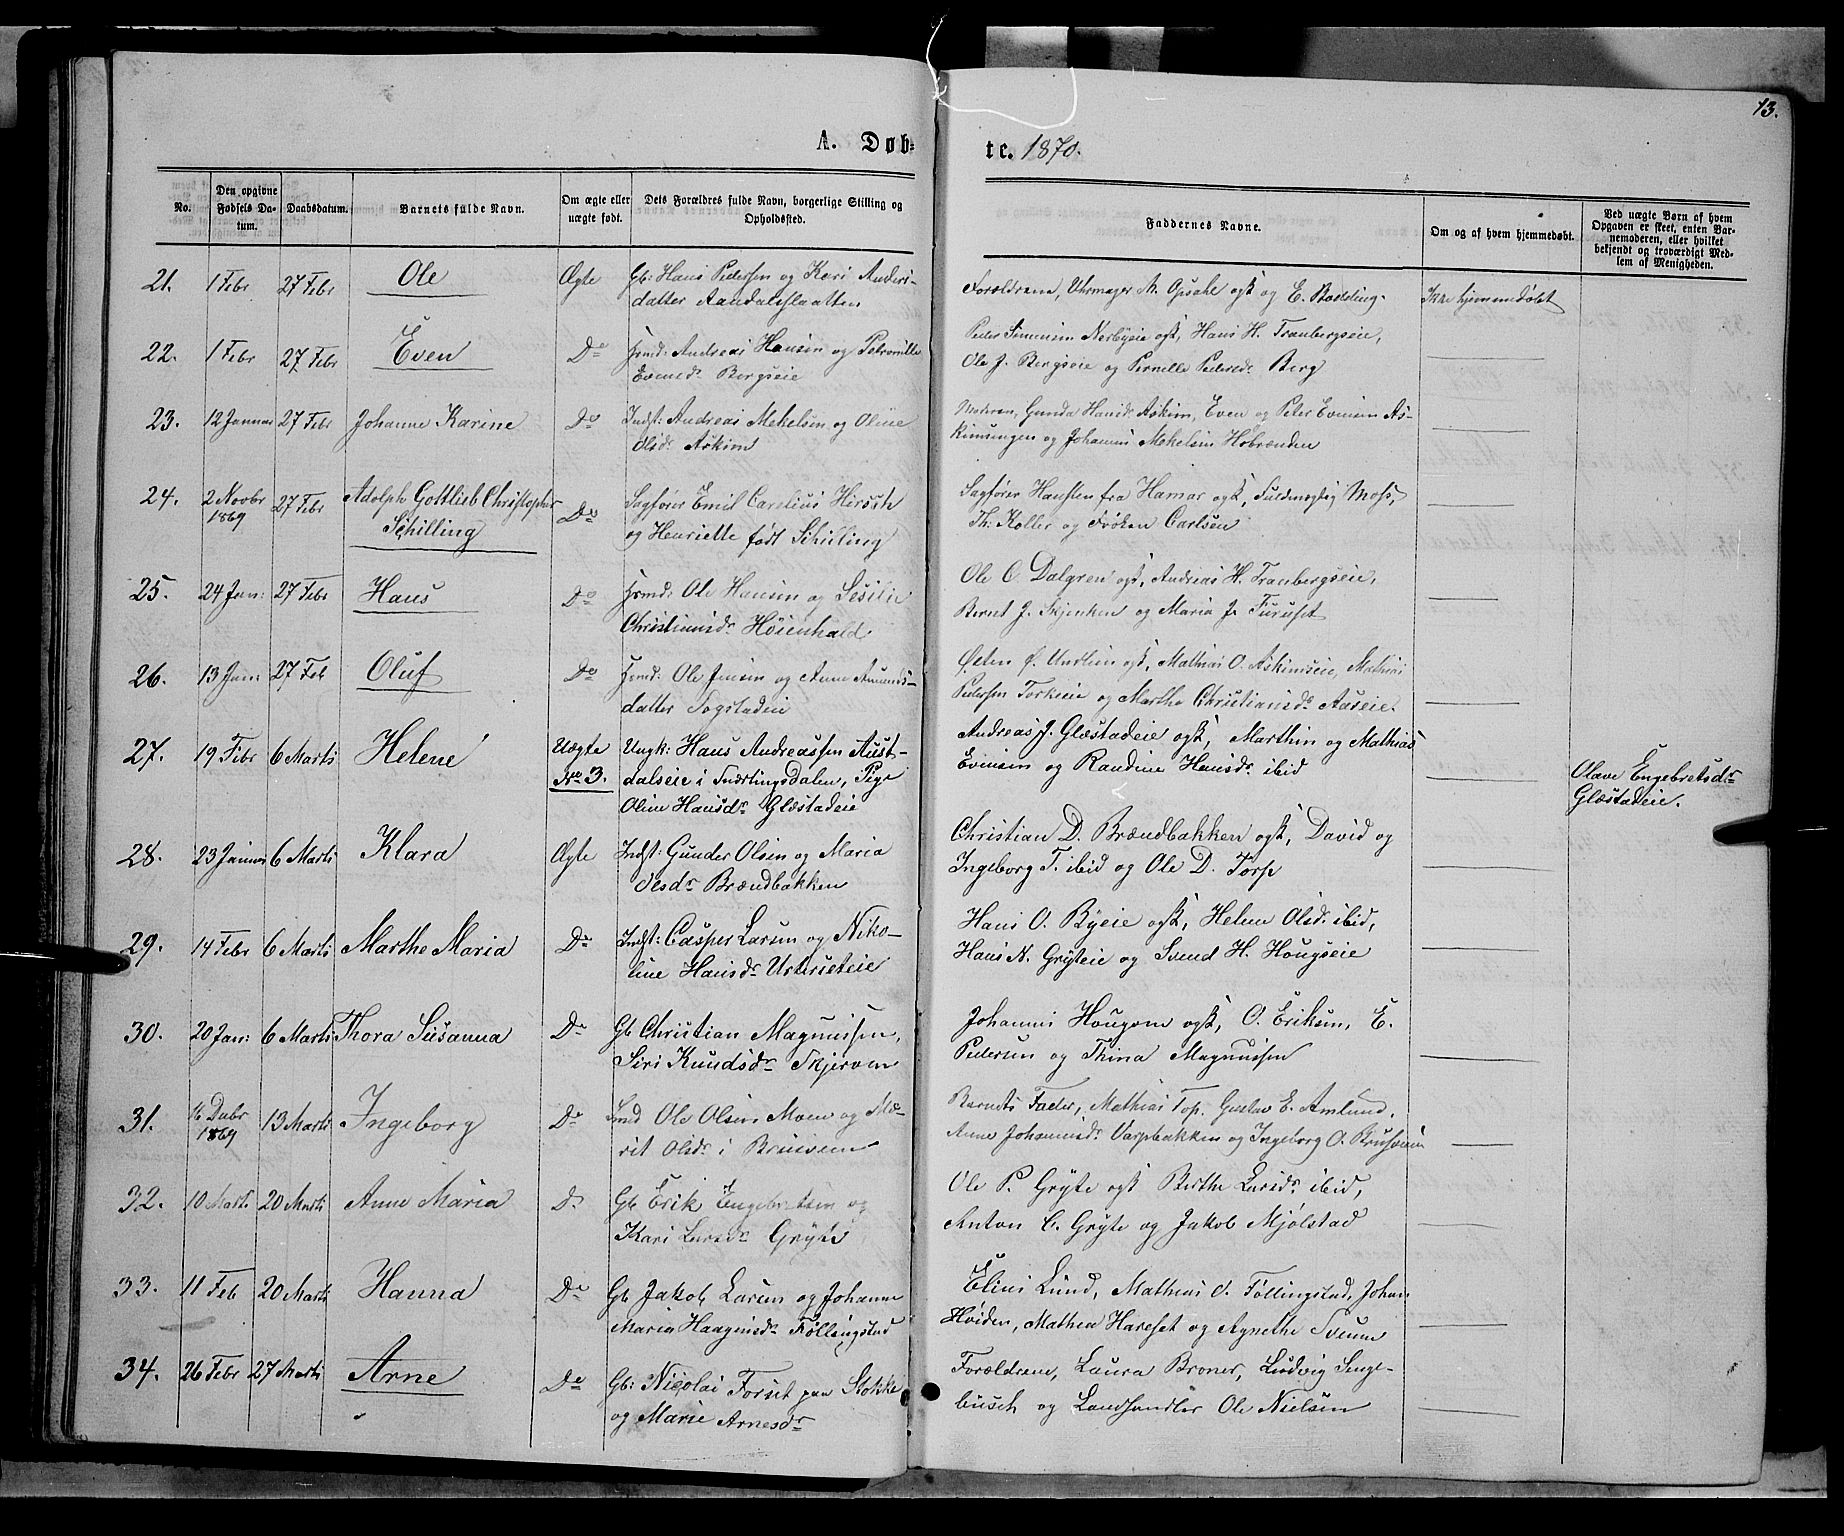 13.
A. Døb=
te. 1870.
No.
Den opgivne Fødsels Da-
tum.
Daabsdatum.
Barnets fulde Navn.
Om ægte eller
uægte født.
Dets Forældres fulde Navn, borgerlige Stilling og
Opholdssted.
Faddernes Navne.
Om og af hvem hjemmedøbt.
Ved uægte Børn af hvem
Opgaven er skeet, enten Bar-
nemoderen, eller hvilket
bekjendt og troværdigt Med-
lem af Menigheden.
21. 1 Febr 27 Febr Ole Ægte Gb: Hans Pedersen og Kari Anders-
datter Aandalsslaatten
Forældrene, Uhrmager M. Opsahl ogsk og E. Bodding- Ikke hjemmedøbt
22. 1 Febr 27 Febr Even Do Husmd: Andreas Hansen og Petronille
Evensdr Bergseie
Peder Simensen Nerbyeie ogsk, Hans H. Tranbergseie,
Ole J. Bergseie og Pernille Pedersdr Berg
23. 12 Januar 27 Febr Johanne Karine Do Indst: Andreas Mekelsen og Oline
Olsdr Askim
Moderen, Gunda Hansdr Askim, Even og Peter Evensen As-
kimengen og Johannes Mekelsen Hobrænden
24. 2 Novbr
1869 27 Febr Adolph Gottlieb Christopher
Schilling Do Sagfører Emil Carelius Hirsch
og Henriette født Schilling
Sagfører Hansten fra Hamar ogsk, Fuldmægtig Moss,
Th: Koller og Frøken Carlsen
25. 24 Jan: 27 Febr Hans Do Husmd: Ole Hansen og Sesilie
Christiansdr Høienhald
Ole C. Dalgren ogsk, Andreas H. Tranbergseie,
Bernt J. Skjenken og Maria J. Furuset
26. 13 Jan: 27 Feb Oluf Do Husmd: Ole Jensen og Anne Amunds-
datter Sogstadeie
Østen Ø. Undlien ogsk, Mathias O. Askimseie, Mathias
Pedersen Torkeie og Marthe Christiansdr Aaseie.
27. 19 Febr 6 Marts Helene Uægte
No 3. Ungk: Hans Andreassen Aust-
dalseie i Snertingsdalen, Pige
Oline Hansdr Glæstadeie
Andreas J. Glæstadeie ogsk, Marthin og Mathias
Evensen og Randine Hansdr ibid
Olave Engebretsdr
Glæstadeie.
28. 23 Januar 6 Marts Klara Ægte Indst: Gunder Olsen og Maria
Olesdr Brændbakken
Christian D. Brændbakken ogsk, David og
Ingeborg T. ibid og Ole D. Torp
29. 14 Febr 6 Marts Marthe Maria Do Indst: Casper Larsen og Niko-
line Hansdr Ustrseteie
Hans O. Byeie ogsk, Helene Olsdr ibid,
Hans N. Gryteie og Svend H. Hougseie
30. 20 Jan: 6 Marts Thora Susanna Do Gb Christian Magnussen,
Siri Knudsdr Skjerven
Johannes Hougom ogsk, O. Eriksen, E.
Pedersen og Thina Magnussen
31. 16 Debr
1869 13 Marts Ingeborg Do Smed Ole Olsen Moen og Ma-
rit Olsdr i Brusveen
Barnets Fader, Mathias Top, Gustav E. Amlund,
Anne Johannesdr Varpbakken og Ingeborg O. Brusveen
32. 10 Marts 20 Marts Anne Maria Do Gb Erik Engebretsen og
Kari Larsdr Gryte
Ole P. Gryte ogsk Berthe Larsdr ibid,
Anton C. Gryte og Jakob Mjølstad
33. 11 Feb 20 Marts Hanna Do Gb Jakob Larsen og Johanne
Maria Haagensdr Føllingstad
Elius Lund, Mathias O. Føllingstad, Johan
Hviden, Mathea Hareset og Agnethe Sveum
34. 26 Febr 27 Marts Arne Do Gb: Nicolai Forset paa Stokke
og Marie Arnesdr
Forældrene, Laura Broner, Ludvig Senge-
busch og Landhandler Ole Nielsen